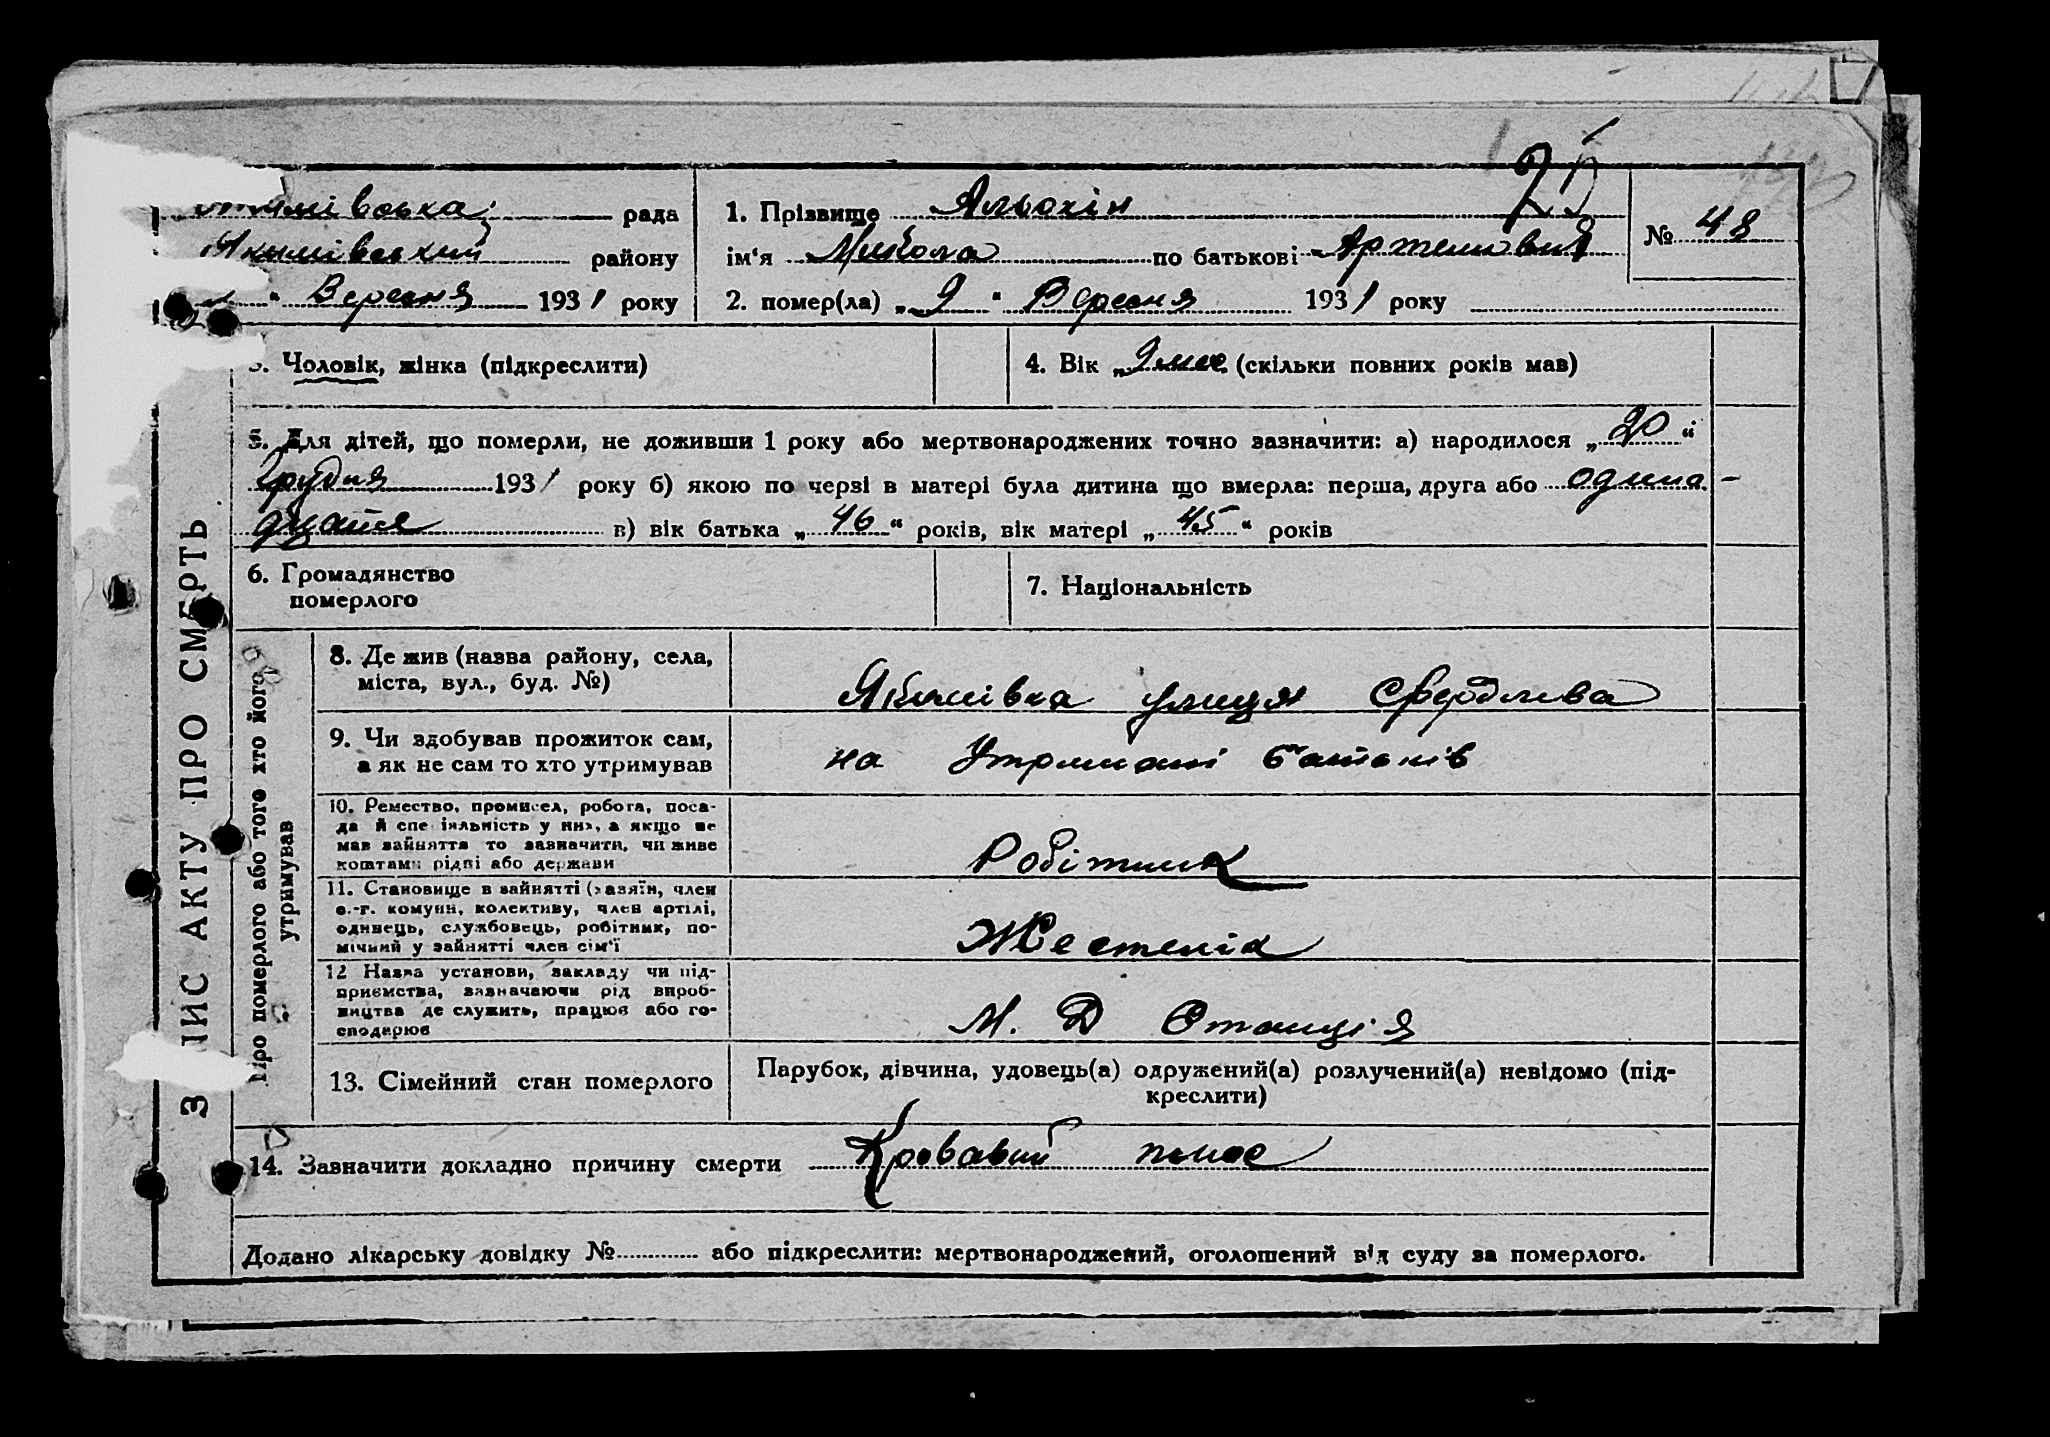 25
имівська рада
Якимівський району
" Вересня 1931 року
1. Прізвище Альохін
ім'я Микола по батькові Артемович
№ 48
2. помер(ла) „9" Вересня 1931 року
3. Чоловік, жінка (підкреслити)
4. Вік „9 мес." (скільки повних років мав)
5. Для дітей, що померли, не доживши 1 року або мертвонароджених точно зазначити: а) народилося „20"
Грудня 1931 року б) якою по черзі в матері була дитина що вмерла: перша, друга або одина-
в) вік батька „46" років, вік матері „45" років
6. Громадянство
померлого
7. Національність
ЗАПИС АКТУ ПРО СМЕРТЬ
Про померлого або того хто його
утримував
8. Де жив (назва району, села,
міста, вул., буд. №)
Якимівка улиця Свердлова
9. Чи здобував прожиток сам,
а як не сам то хто утримував
на Утриманні батьків
10. Ремество, промисел, робота, поса-
да й спеціяльність у них, а якщо не
мав зайняття то зазначити, чи живе
коштами рідні або держави
Робітник
11. Становище в зайнятті (хазяїн, член
с.-г. комуни, колективу, член артілі,
одинець, службовець, робітник, по-
мічний у зайнятті член сім'ї
Жестенік
12 Назва установи, закладу чи під-
приємства, зазначаючи рід вироб-
ництва де служить, працює або го-
сподарює
М. Д Станція
13. Сімейний стан померлого
Парубок, дівчина, удовець(а) одружений(а) розлучений(а) невідомо (під-
креслити)
14. Зазначити докладно причину смерти Кровавий понос
Додано лікарську довідку № або підкреслити: мертвонароджений, оголошений від суду за померлого.